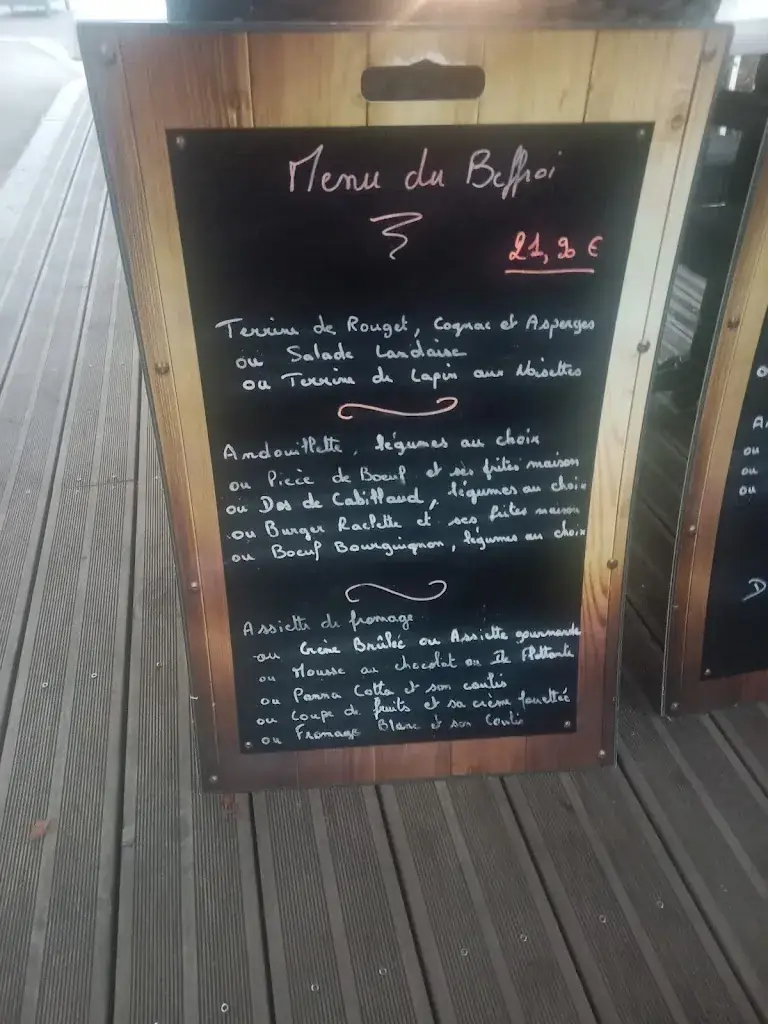 Menu du Beffroi
21,90 €
Terrine de Rouget, Cognac et Asperges
ou Salade Landaise
ou Terrine de Lapin aux Noisettes
Andouillette, légumes au choix
ou Pièce de Boeuf et ses frites maison
ou Dos de Cabillaud, légumes au choix
ou Burger Raclette et ses frites maison
ou Boeuf Bourguignon, légumes au choix
Assiette de fromage
ou Crème Brûlée ou Assiette gourmande
ou Mousse au chocolat ou Ile Flottante
ou Panna Cotta et son coulis
ou Coupe de fruits et sa crème fouettée
ou Fromage Blanc et son Coulis
A
ou
ou
ou
D